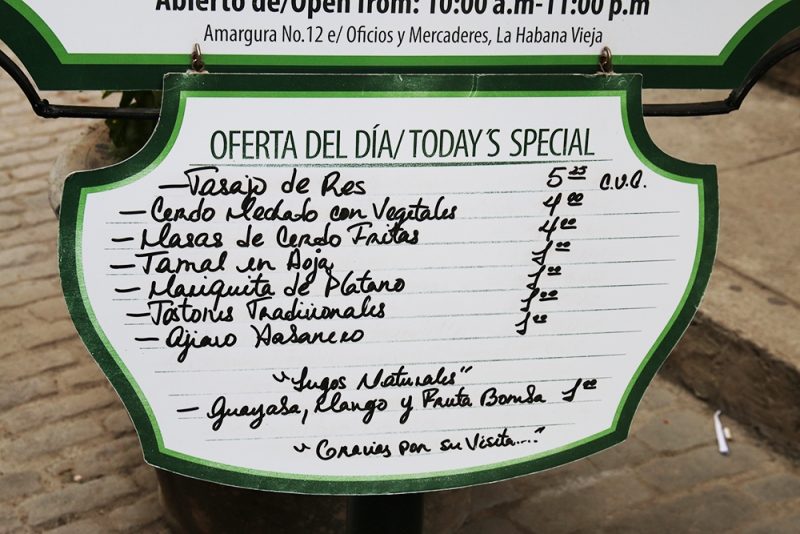 Abierto de/Open from: 10:00 a.m-11:00 p.m
Amargura No.12 e/ Oficios y Mercaderes, La Habana Vieja
OFERTA DEL DÍA/ TODAY'S SPECIAL
— Tasajo de Res 5.25 C.U.C.
— Cerdo Mechado con Vegetales 4.00
— Masas de Cerdo Fritas 4.00
— Tamal en Hoja 1.00
— Mariquita de Platano 1.00
— Tostones Tradicionales 1.00
— Ajiaco Habanero 1.00
"Jugos Naturales"
— Guayaba, Mango y Fruta Bomba 1.00
"Gracias por su Visita...."